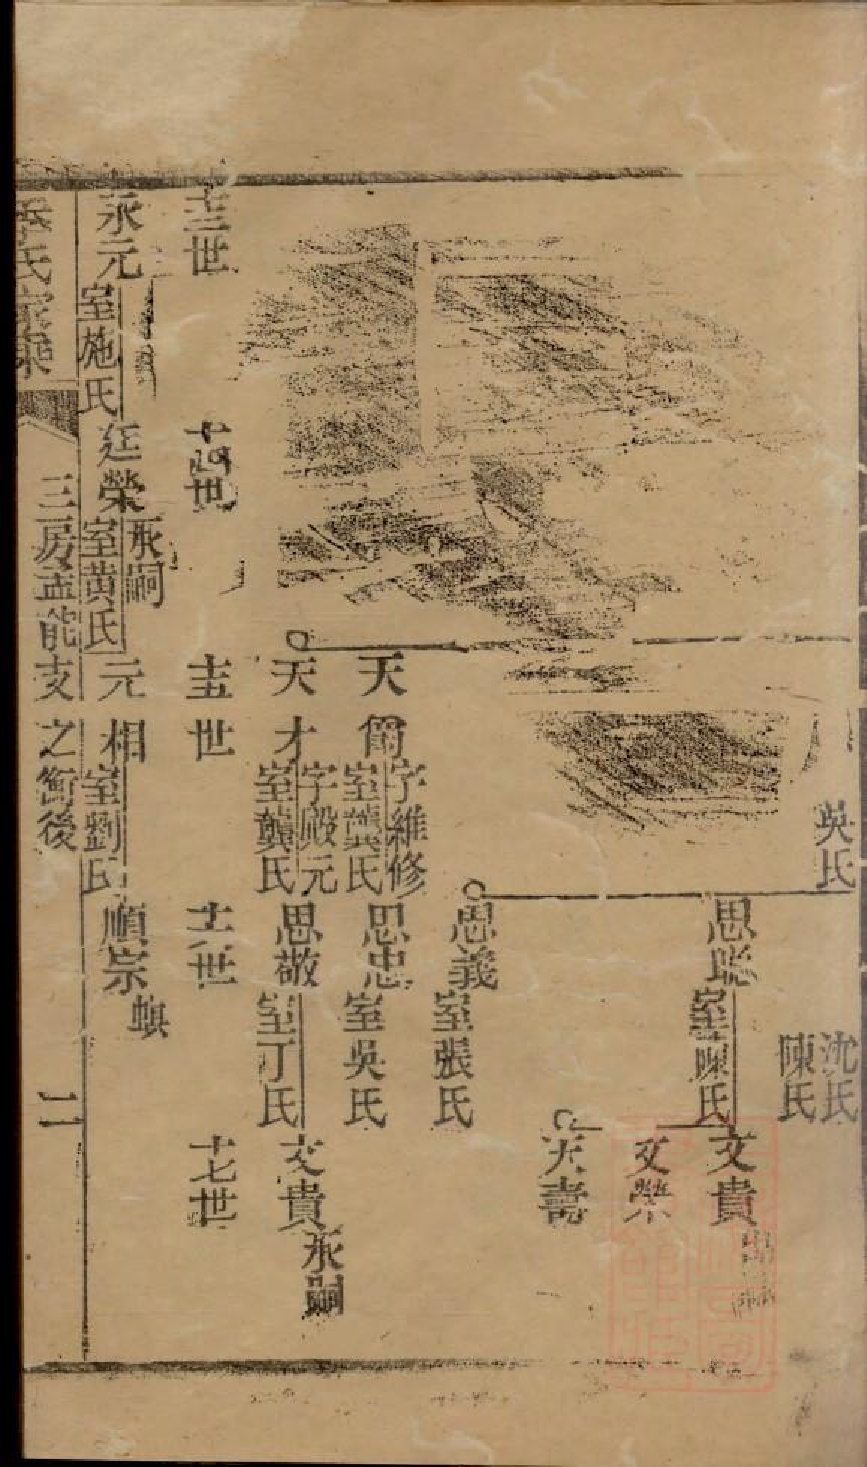 吳氏
沈氏
陳氏
思聰
室陳氏
文貴
出嗣
文榮
天壽
思義
室張氏
天爵
字維修
室龔氏
思忠
室吳氏
天才
字殿元
室龔氏
思敬
室丁氏
文貴
承嗣
十三世
十四世
十五世
十六世
十七世
永元
室施氏
廷榮
承嗣
室黃氏
元相
室劉氏
順宗
螟
氏家乘
三房孟能支之衡後
二